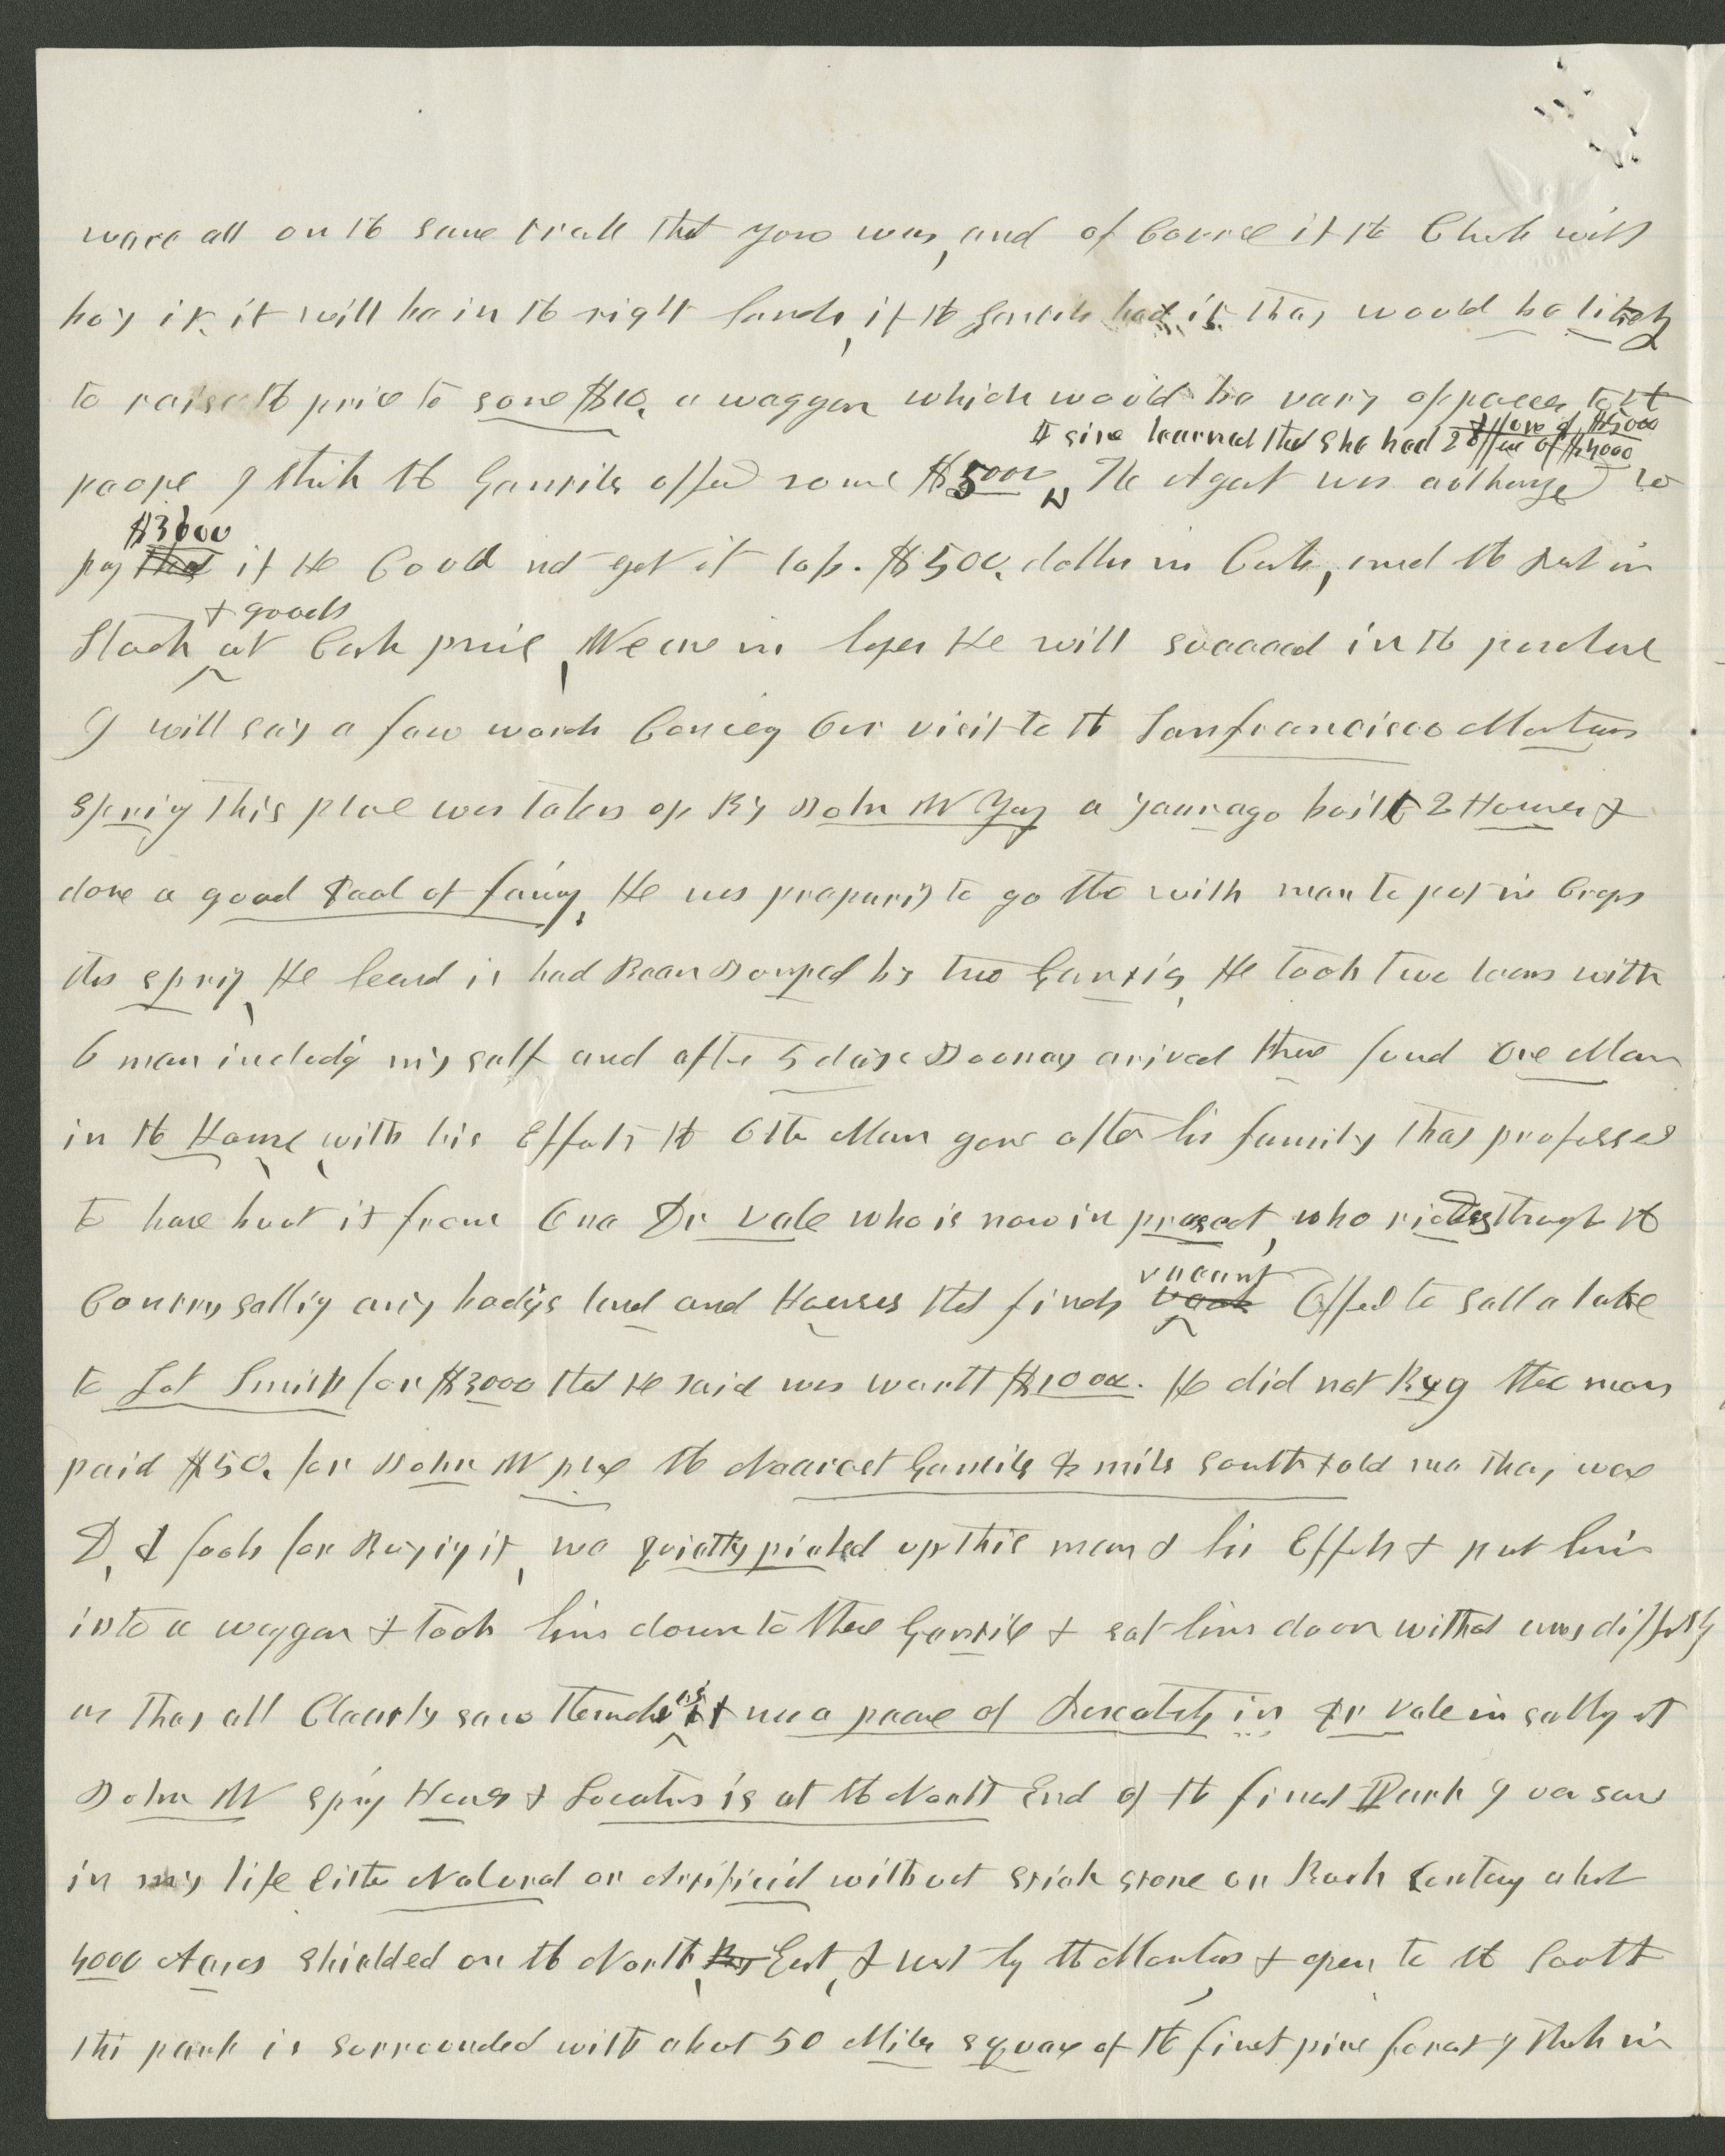 ware all on the same track that you was, and of Course if the Church will
buy it, it will be in the right hands, if the Gentile had it they would be likely
to raise the price to some $10, a waggon which would be vary oppressive to the
I since learned that she had 2 offers of $5000 offer of $4000
people I think the Gentiles offed some $5000, The Agent was authorized to
$3000
pay that if He Could not get it less. $500, dollars in Cash, and the rest in
+ goods
Stock at Cash price, We are in hopes He will succeed in the purchase
I will say a few words Concerning Our visit to the Sanfrancisco Mountain
Spring This place was taken up By John W Young a year ago built 2 Houses &
done a good deal of fencing, He was preparing to go there with men to put in Crops
this spring, He heard it had Been Jumped by two Gentiles, He took two teams with
6 men including my self and after 5 days Journey arived there found One Man
in the House, with his Effects the Other Man gone after his family They professed
to have bout it from One Dr Vale who is now in prescott, who rides through the
vacant
Country selling any body's land and Houses that finds Offed to sell a lake
to Lot Smith for $3000 that He said was worth $10000. He did not Buy The man
paid $50. for John W place the Nearest Gentile 2 miles south told me they were
D, d fools for Buying it, we quietly picked up this man & his Effects & put him
into a waggon & took him down to these Gentile & sat him down without any difficulty
as They all Clearly saw themselves it was a peace of Rascality in Dr Vale in selling it
John W Spring House & Location is at the North End of the finest Park I ever saw
in my life Either Natural or Artificial without stick stone or Rock Containing about
4000 Acres shielded on the North, By East, & west by the Mountains & open to the South
the park is surrounded with about 50 Miles square of the finest pine forest I think in